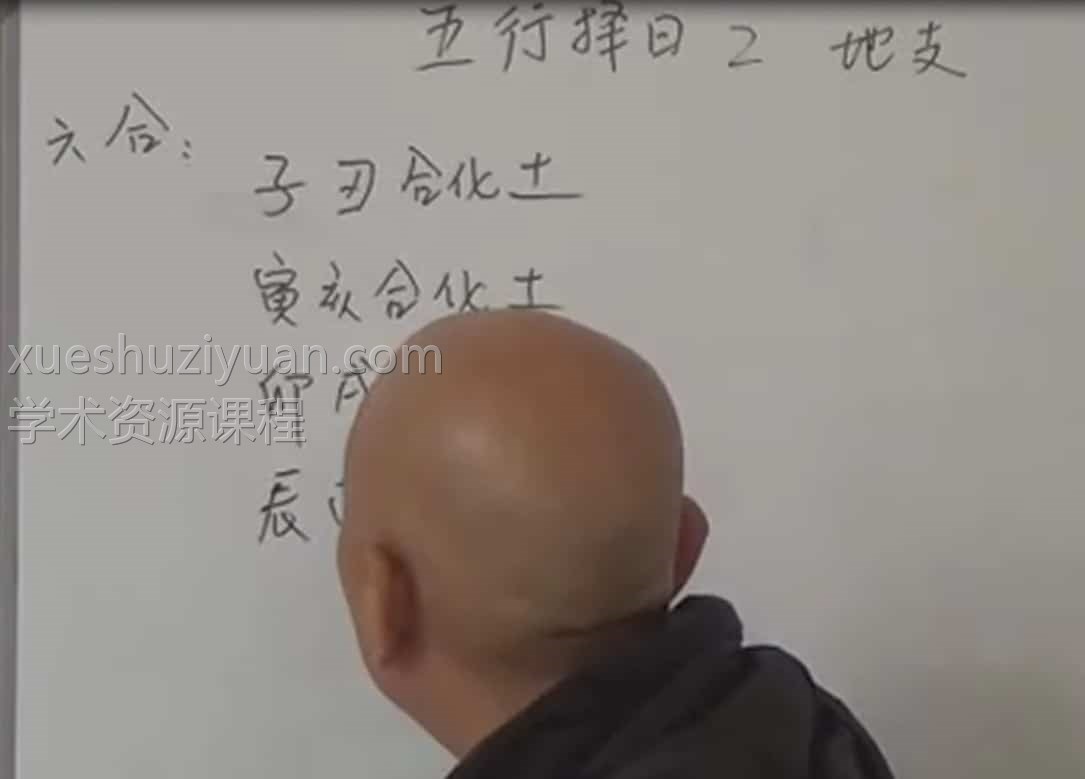 五行择日2 地支
六合:
子丑合化土
寅亥合化土
xueshuziyuan.com
卯戌
学术资源课程
辰